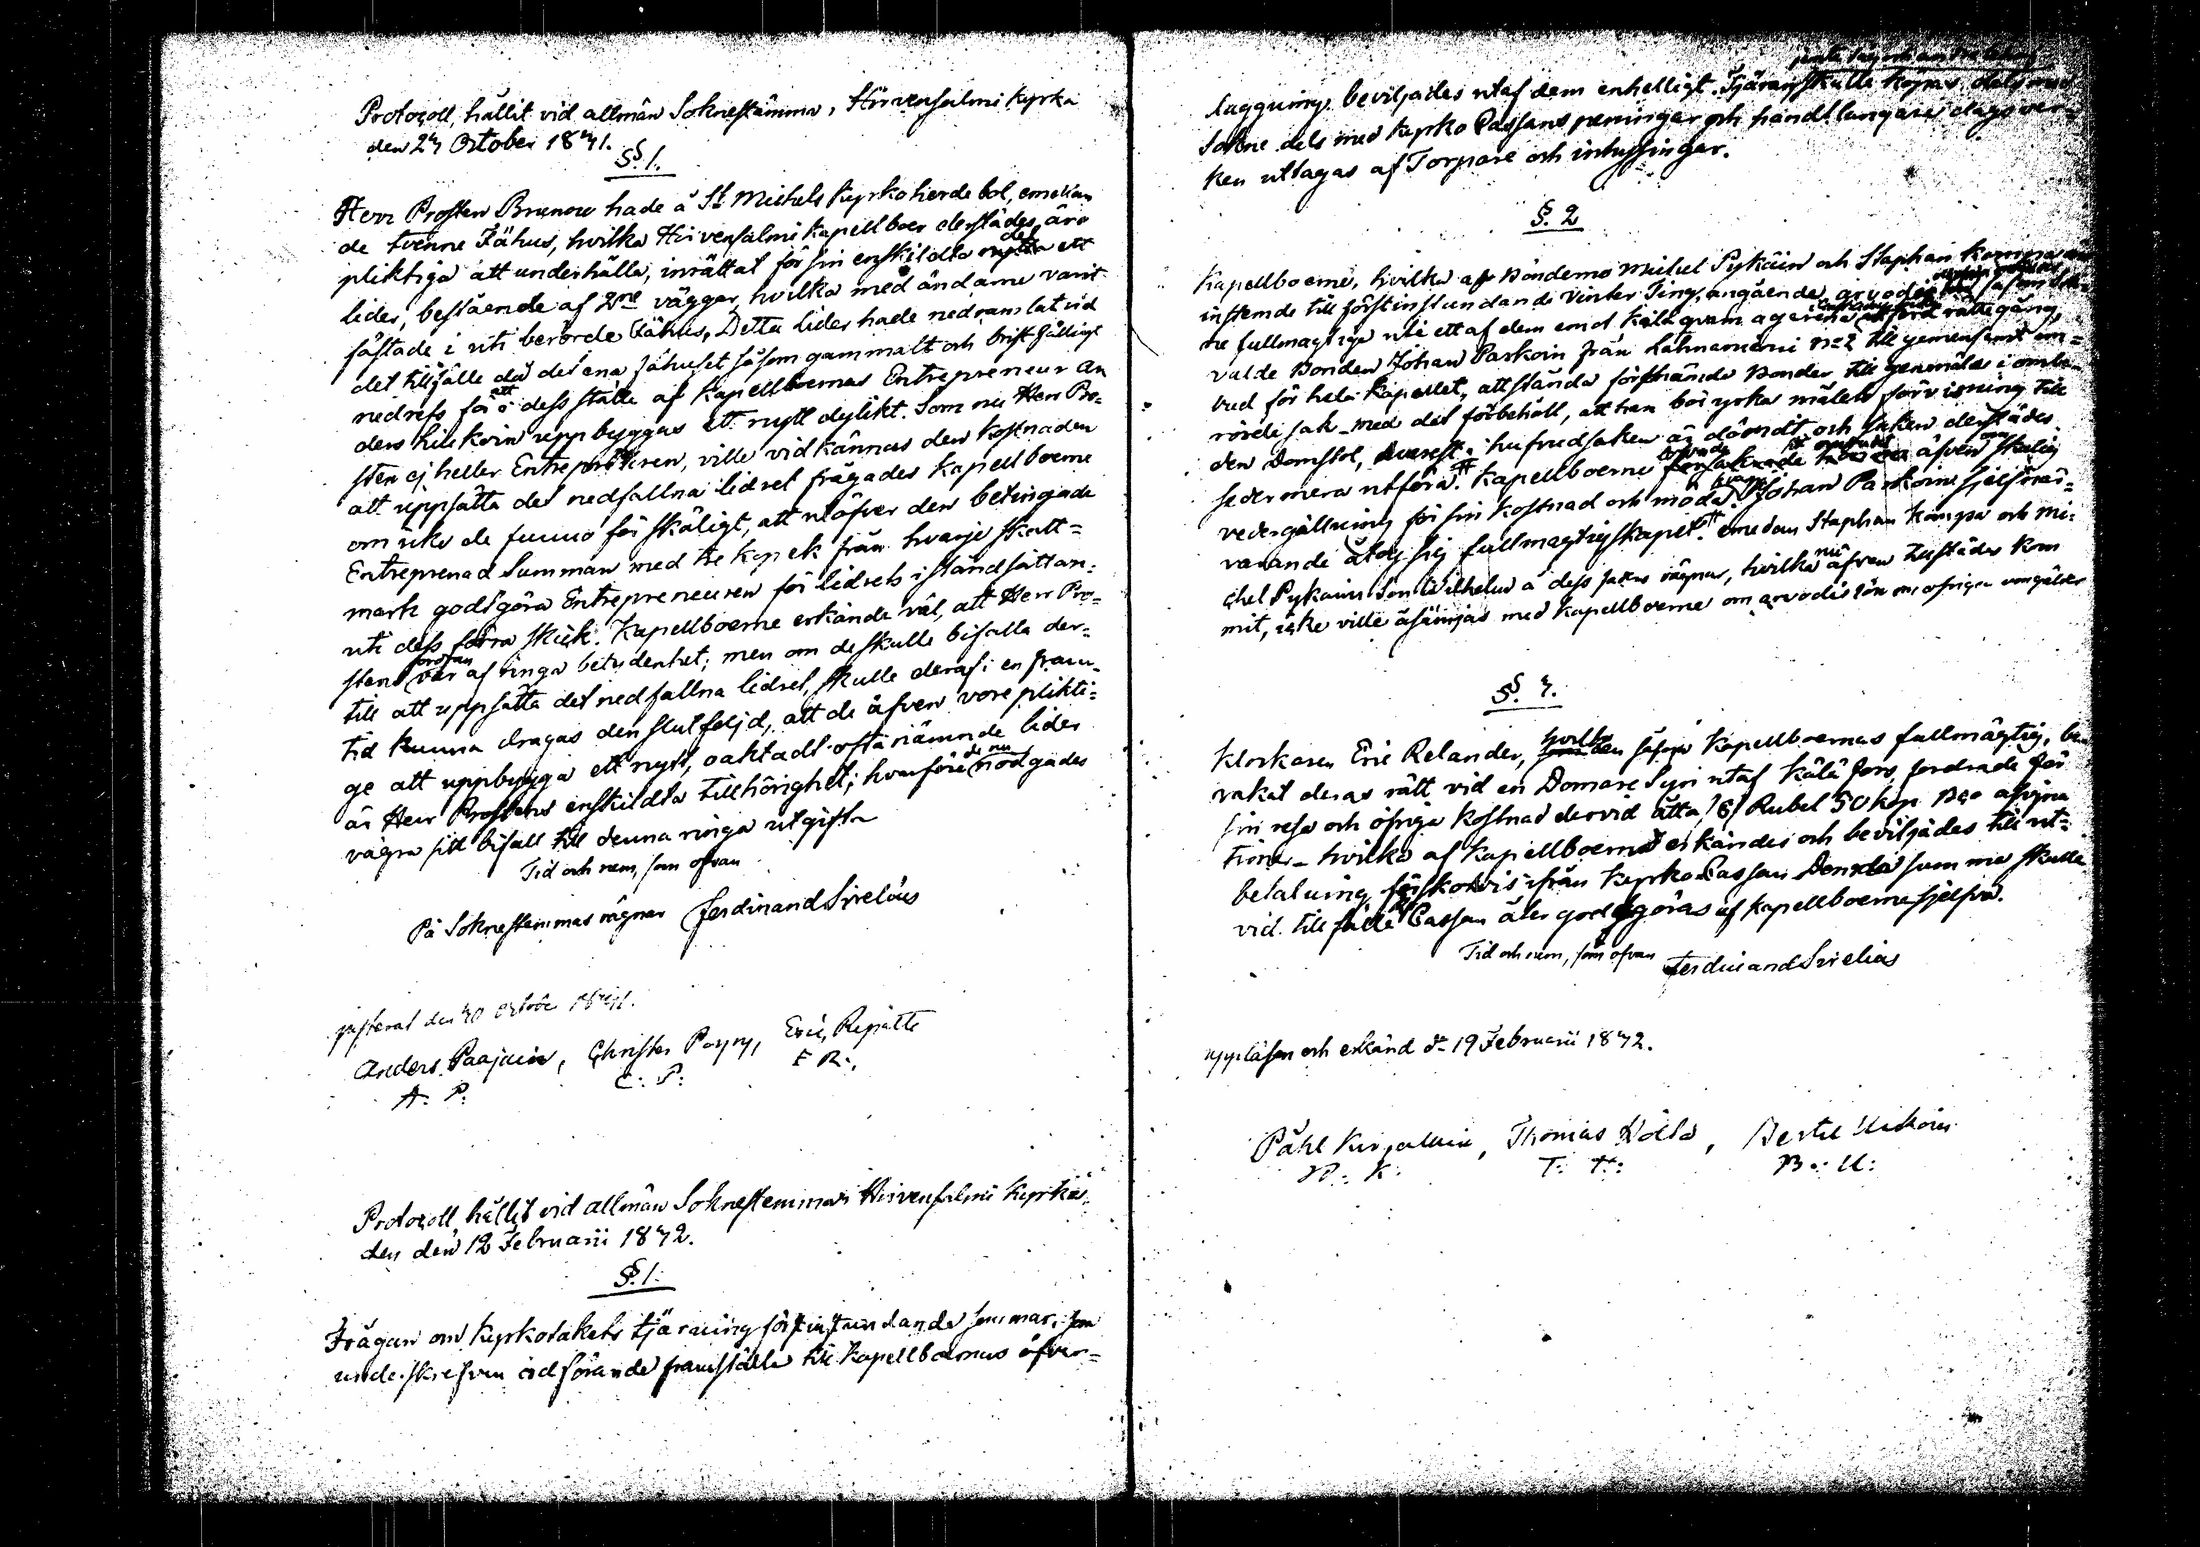 Protocoll, hållit vid allmän Soknestämma i Hirvensalmi kyrka
den 24 October 1841.
§. 1.
Herr Prosten Brunow hade å St Michels Kyrkoherde bol, emellan
de tvenne Fähus, hvilka Hirvensalmi Kapellboer derstädes äro
pliktiga att underhålla, inrättat för sin enskildta del ett
lider, bestående af 2ne väggar, hvilka med ändarne varit
fästade i uti berörde Fähus, Detta lider hade nedramlat vid
det tillfälle då det ena fähuset såsom gammalt och bristfälligt
nedrefs för att i dess ställe af Kapellboernas Entrepreneur An
ders Hiskoin uppbyggas ett nytt dylikt. Som nu Herr Pro=
sten ej heller Entrepreneuren, ville vidkännas den kostnaden
att uppsätta det nedfallna lidret frågades Kapellboerne
om icke de funno för skäligt, att utöfver den betingade
Entreprenad Summan med tre kopek från hvarje skatt=
mark godtgöra Entrepreneuren för lidrets iståndsättan=
uti dess förra skick. Kapellboerne erkände väl, att Herr Pro=
stens fordran var af ringa betydenhet; men om de skulle bifalla der=
till att uppsätta det nedfallna lidret, skulle deraf i en fram=
tid kunna dragas den slutföljd, att de äfven vore plikti=
ge att uppbygga ett nytt, oaktadt oftanämnde lider
är Herr Prostens enskildta tillhörighet; hvarföre de nu nödgades
vägra sitt bifall till denna ringa utgift
Tid och rum, som ofvan
På Sokнestemmas vägnar Ferdinand Sirelius
justerat den 30 October 1841.
Anders Paajain, Christer Poyry, Eric Repatte
A. P. C. P: E R:
Protocoll, hållit vid allmän Sokнestemma i Hirvensalmi kyrka
den den 12 Februarii 1842.
§. 1.
Frågan om kyrkotakets tjärning förstinstundande sommar, som
undeskrefven ordförande framställa till Kapellboernas öfver=
läggning, beviljades utaf dem enhelligt. Tjäran skulle köpas, dels med
Sokne dels med kyrko Cassans penningar och handtlangare dagsver=
ken uttagas af Torpare och inhysingar.
§. 2
Kapellboerne, hvilka af Bönderne Michel Pykäin och Staphan Komppa
instemde till förstinstundande Vinter Ting, angående arvode
valde Bonden Johan Parkoin från Lahnaniemi No 2 till gemensamt om=
bud för hela Kapellet, att stånda förstnämnde Bonder till genmäle i omta=
rörde sak med det förbehåll, att han bör yrka målets förvisning till
den Domstol, hvarest hufvudsaken är dömdt och saken derstädes
sedermera utföra. Kapellboerne lofvade äfven skälig
vedergällning för sin kostnad och möda. Johan Parkoin sjelf när=
varande åtog sig fullmagtigskapet. emedan Staphan Kompa och Mi=
chel Pykäin Son Wilhelm å dess faders vägnar, hvilka nu äfven tillstädes kom
mit, icke ville åsämjas med Kapellboerne om arvodes lön
§. 3.
Klockaren Eric Relander, hvilken såsom Kapellboernas fullmägtig, be
vakat deras rätt vid en Domare Syn utaf Kälä fors, fordrade för
sin resa och öfriga kostnad dervid åtta /8/ Rubel 50 kop. Bco assigna
tioner - hvilka af Kapellboerne erkändes och beviljades till ut=
betalning förskottvis ifrån Kyrko Cassan Denna summa skulle
vid tillfälle Cassan åter godtgöras af Kapellboerne sjelfva.
Tid och rum, som ofvan
Ferdinand Sirelius
uppläsen och erkänd d. 19 Februarii 1842.
Påhl Kirjalain, Thomas Hölta, Bertil Uskoin
P. K. T. H: B. U: